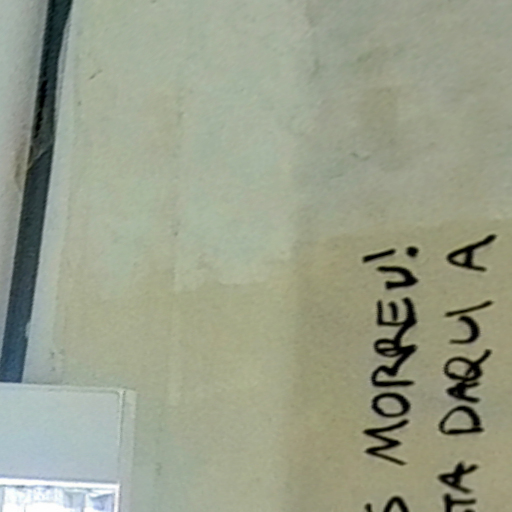 S MORREU!
TA DAQUI A